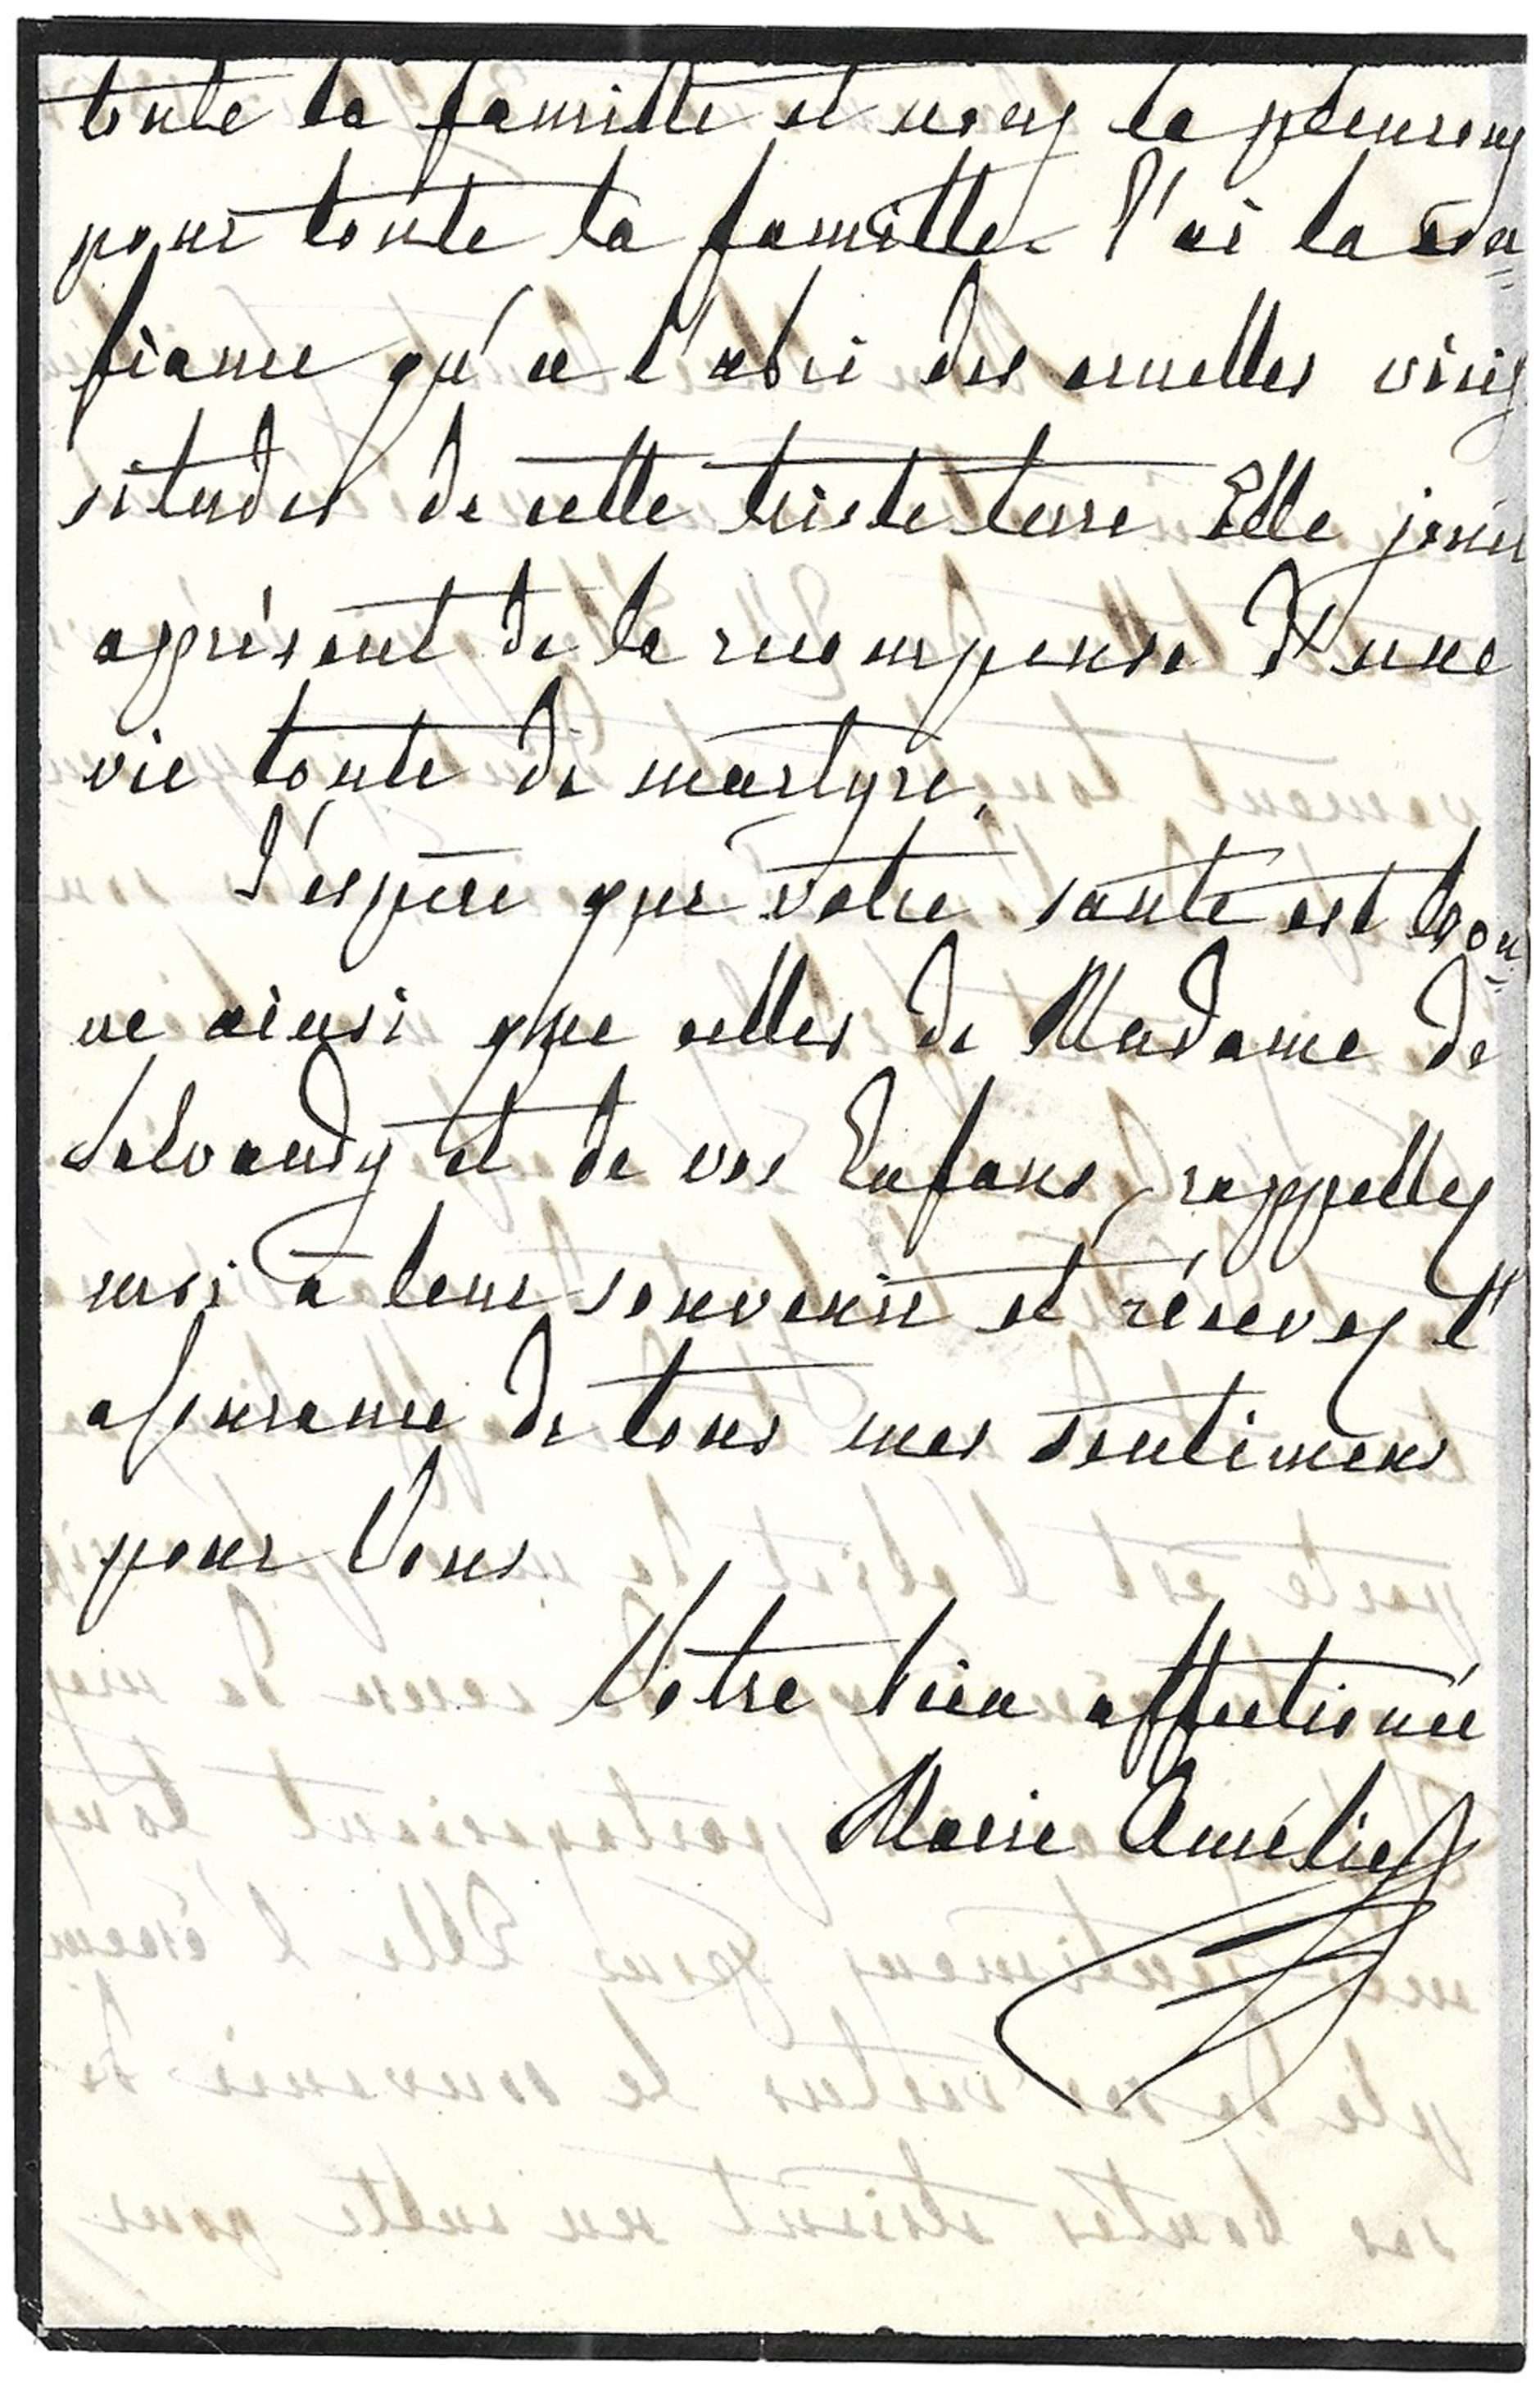 toute la famille et nous la pleurons
pour toute la famille. J'ai la con=
fiance qu'a l'abri des cruelles vicis
situdes de cette triste terre Elle jouit
apprèsent de la recompense d'une
vie toute de martyre.
J'espère que votre santé est bon=
ne ainsi que celles de Madame de
Salvandy et de vos Enfans, rappellez
moi à leur souvenir et recevez l'
assurance de tous mes sentimens
pour Vous
Votre bien affectionée
Marie Amélie